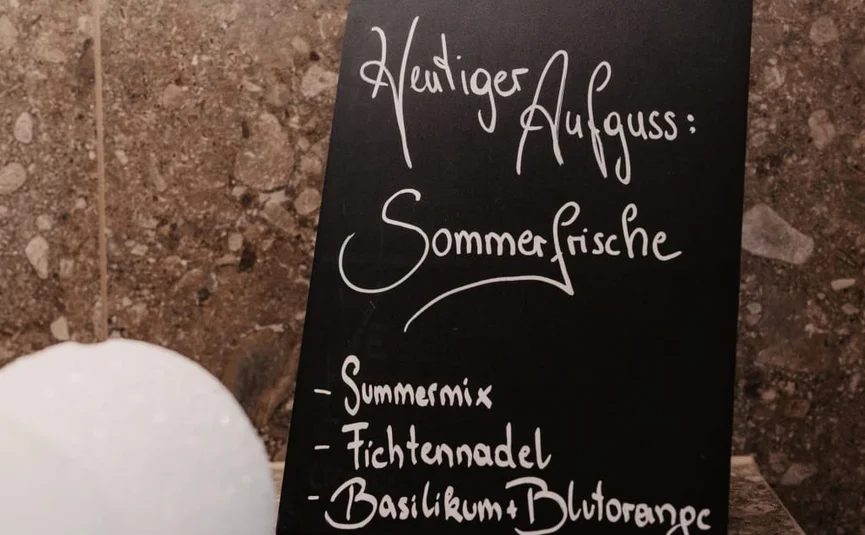 Heutiger Aufguss:
Sommerfrische
- Summermix
- Fichtennadel
- Basilikum + Blutorange